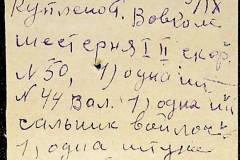 9/IX
Куплено г. Вовком
шестерня I II скор.
N 50, 1) одна шт
N 44 Вал. 1) одна ш
сальник войлоч
1) одна штука